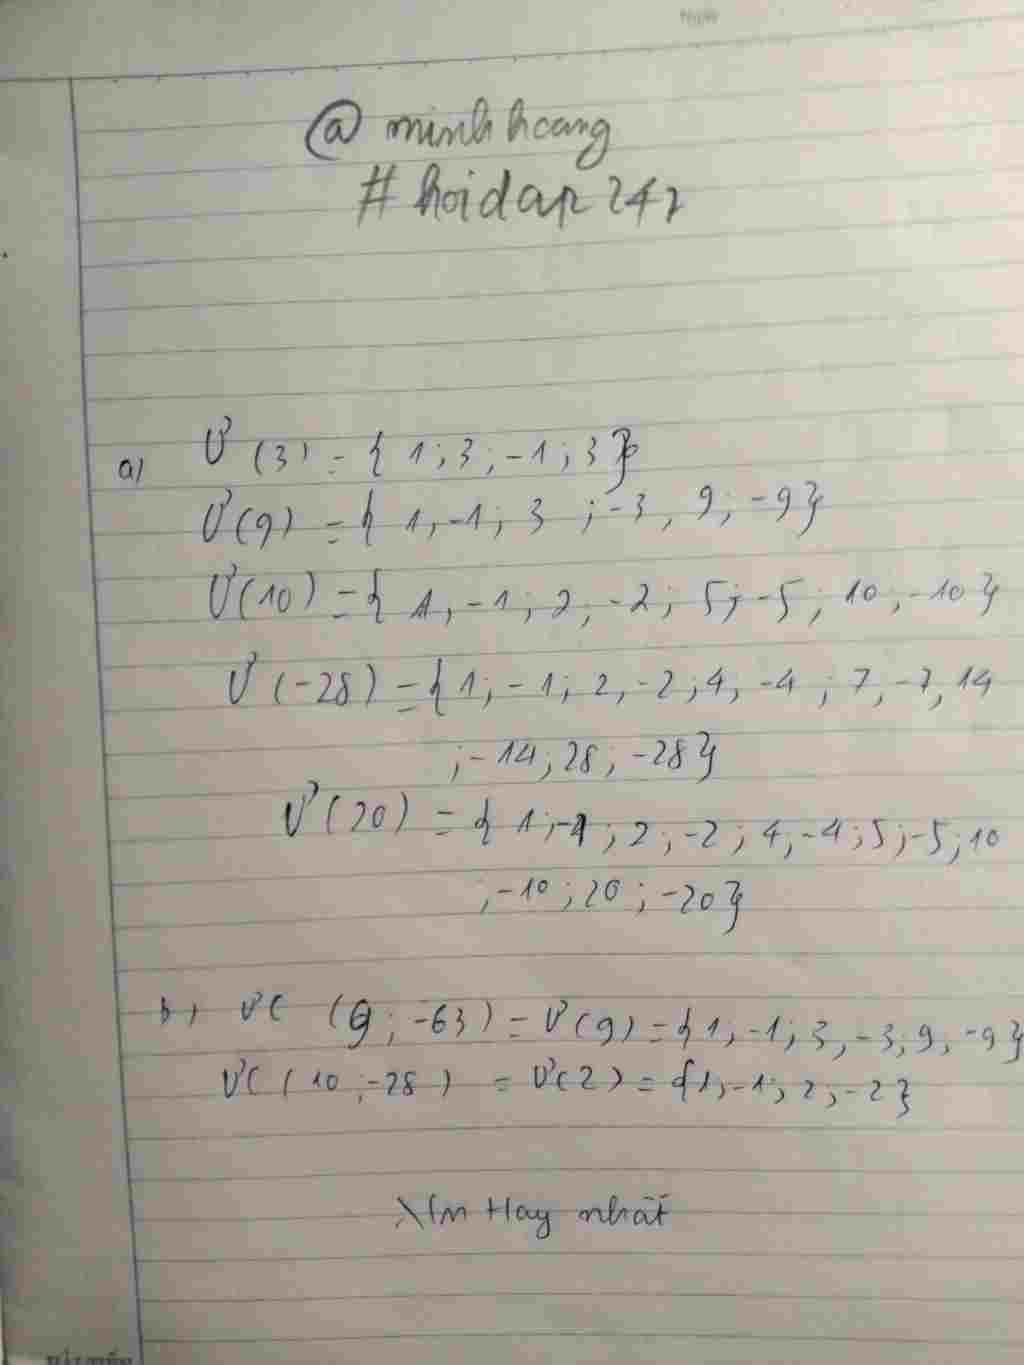 @ minh hoang
# hoidap 247
a) Ư (3) = { 1 ; 3 ; -1 ; 3 }
Ư (9) = { 1, -1 ; 3 ; -3, 9 ; -9 }
Ư (10) = { 1, -1 ; 2 ; -2 ; 5 ; -5 ; 10 ; -10 }
Ư (-28) = { 1 ; -1 ; 2, -2 ; 4, -4 ; 7, -7, 14
; -14 ; 28 ; -28 }
Ư (20) = { 1 ; -1 ; 2 ; -2 ; 4, -4 ; 5 ; -5 ; 10
; -10 ; 20 ; -20 }
b) ƯC (9 ; -63) = Ư (9) = { 1, -1 ; 3, -3, 9, -9 }
ƯC (10 ; -28) = Ư (2) = { 1, -1 ; 2, -2 }
Xin Hay nhất